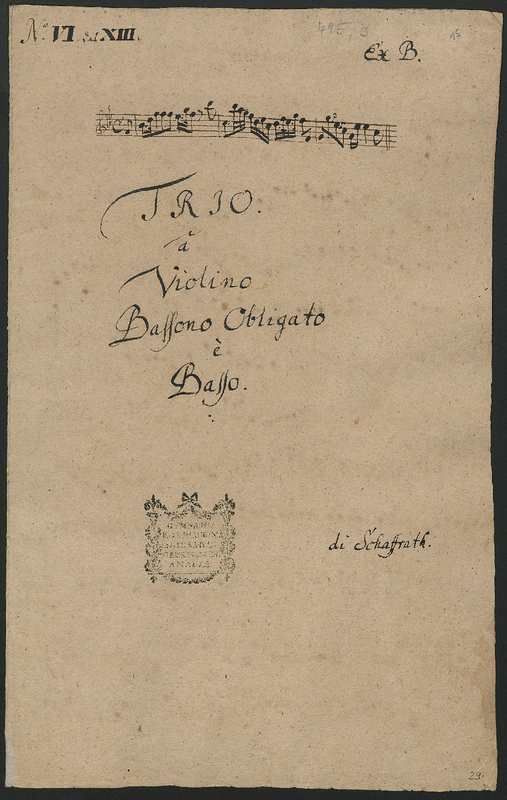 No VI. XIII.
495, B
Ex B.
TRIO.
a
Violino
Bassono Obligato
è
Basso.
di Schaffrath.
29.